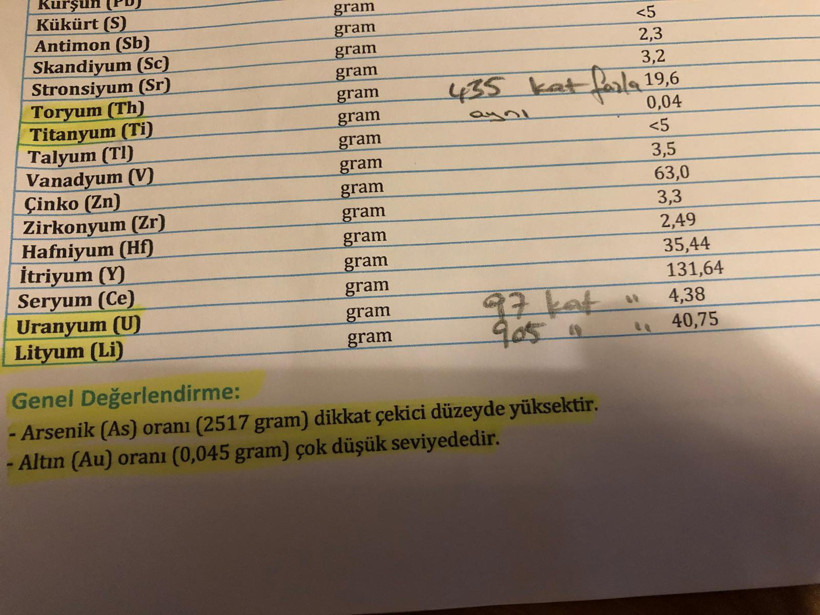 Kurşun (Pb)
Kükürt (S) gram
Antimon (Sb) gram <5
Skandiyum (Sc) gram 2,3
Stronsiyum (Sr) gram 3,2
Toryum (Th) gram 435 kat fazla 19,6
Titanyum (Ti) gram aynı 0,04
Talyum (Tl) gram <5
Vanadyum (V) gram 3,5
Çinko (Zn) gram 63,0
Zirkonyum (Zr) gram 3,3
Hafniyum (Hf) gram 2,49
İtriyum (Y) gram 35,44
Seryum (Ce) gram 131,64
Uranyum (U) gram 97 kat " 4,38
Lityum (Li) gram 905 " " 40,75
Genel Değerlendirme:
- Arsenik (As) oranı (2517 gram) dikkat çekici düzeyde yüksektir.
- Altın (Au) oranı (0,045 gram) çok düşük seviyededir.